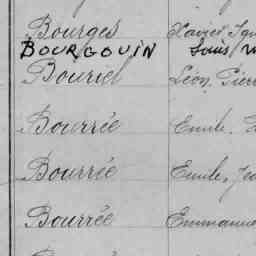 Bourges Xavier
BOURGOUIN Louis
Bouriel Léon, Pierr
Bourrée Emile,
Bourrée Emile, Je
Bourrée Emmanue